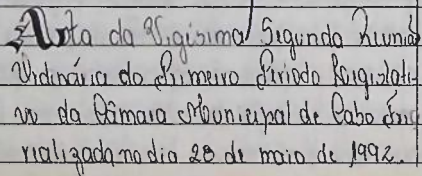 Ata da Vigésima Segunda Reunião
Ordinária do Primeiro Período Legislati-
vo da Câmara Municipal de Cabo Frio
realizada no dia 28 de maio de 1992.